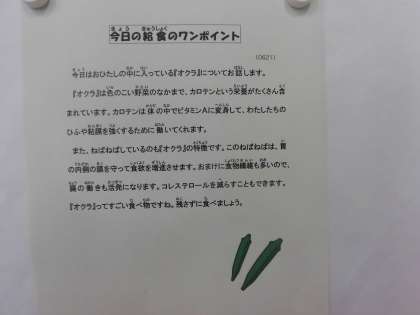 今日の給食のワンポイント
(0621)
今日はおひたしの中に入っている『オクラ』についてお話します。
『オクラ』は色のこい野菜のなかで、カロテンという栄養がたくさん含
まれています。カロテンは体の中でビタミンAに変身して、わたしたちの
ひふや粘膜を強くするために働いてくれます。
また、ねばねばしているのも『オクラ』の特徴です。このねばねばは、胃
の内側の膜を守って食欲を増進させます。おまけに食物繊維も多いので、
腸の働きも活発になります。コレステロールを減らすこともできます。
『オクラ』ってすごい食べ物ですね。残さずに食べましょう。